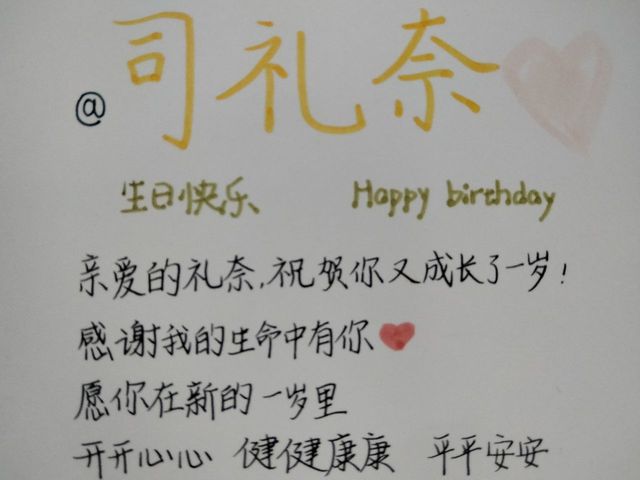 @司礼奈
生日快乐 Happy birthday
亲爱的礼奈,祝贺你又成长了一岁!
感谢我的生命中有你
愿你在新的一岁里
开开心心 健健康康 平平安安